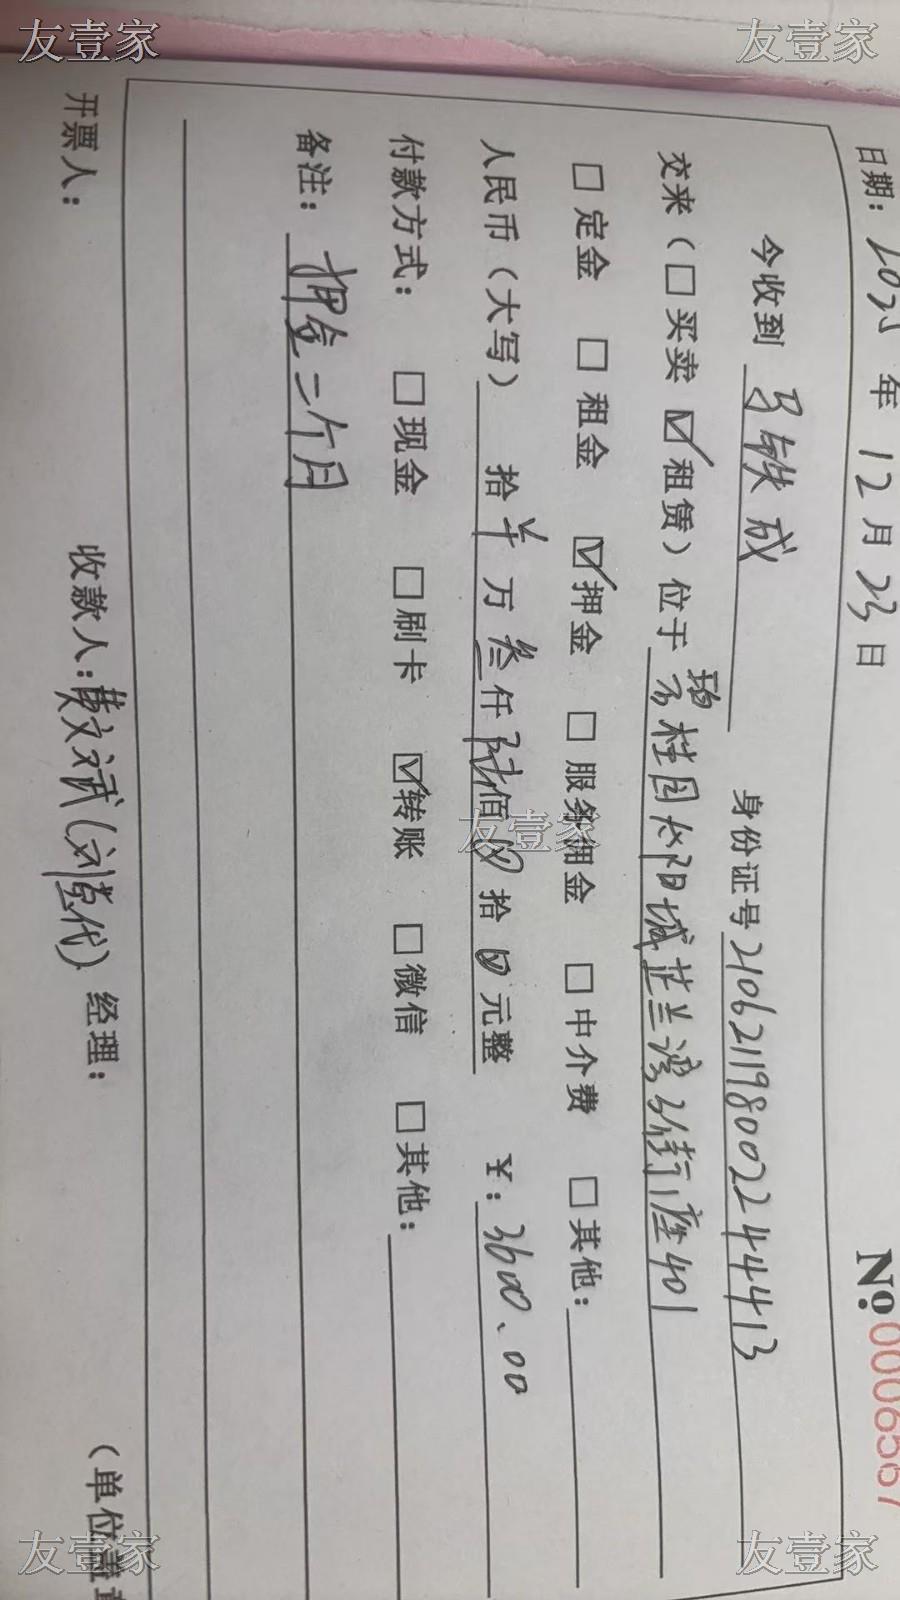 友壹家
友壹家
No.0006567
日期：2025年12月23日
今收到 马铁成 身份证号 210621198002244413
交来（☐买卖 ☑租赁）位于 碧桂园太阳城芷兰湾3街1座401
☐定金 ☐租金 ☑押金 ☐服务佣金 ☐中介费 ☐其他：
人民币（大写） 拾 万 叁仟陆佰 拾 元整 ¥：3600.00
友壹家
付款方式： ☐现金 ☐刷卡 ☑转账 ☐微信 ☐其他：
备注：押金二个月
开票人： 收款人：黄文斌（刘 代） 经理： （单位盖章
友壹家
友壹家